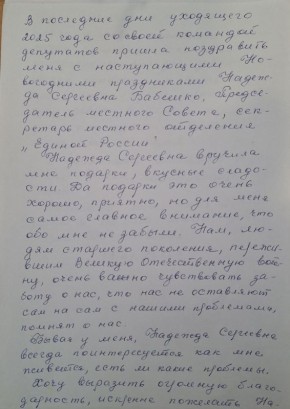 В последние дни уходящего
2025 года со своей командой
депутатов пришла поздравить
меня с наступающими Но-
вогодними праздниками Надеж-
да Сергеевна Бабешко, Предсе-
датель местного Совета, сек-
ретарь местного отделения
„Единой России".
Надежда Сергеевна вручила
мне подарки, вкусные сладо-
сти. Да подарки это очень
хорошо, приятно, но для меня
самое главное внимание, что
обо мне не забыли. Нам, лю-
дям старшего поколения, пережи-
вшим Великую Отечественную вой-
ну, очень важно чувствовать за-
боту о нас, что нас не оставляют
сам на сам с нашими проблемами,
помнят о нас.
Бывая у меня, Надежда Сергеевна
всегда поинтересуется как мне
живется, есть ли какие проблемы.
Хочу выразить огромную благо-
дарность, искренне пожелать На-